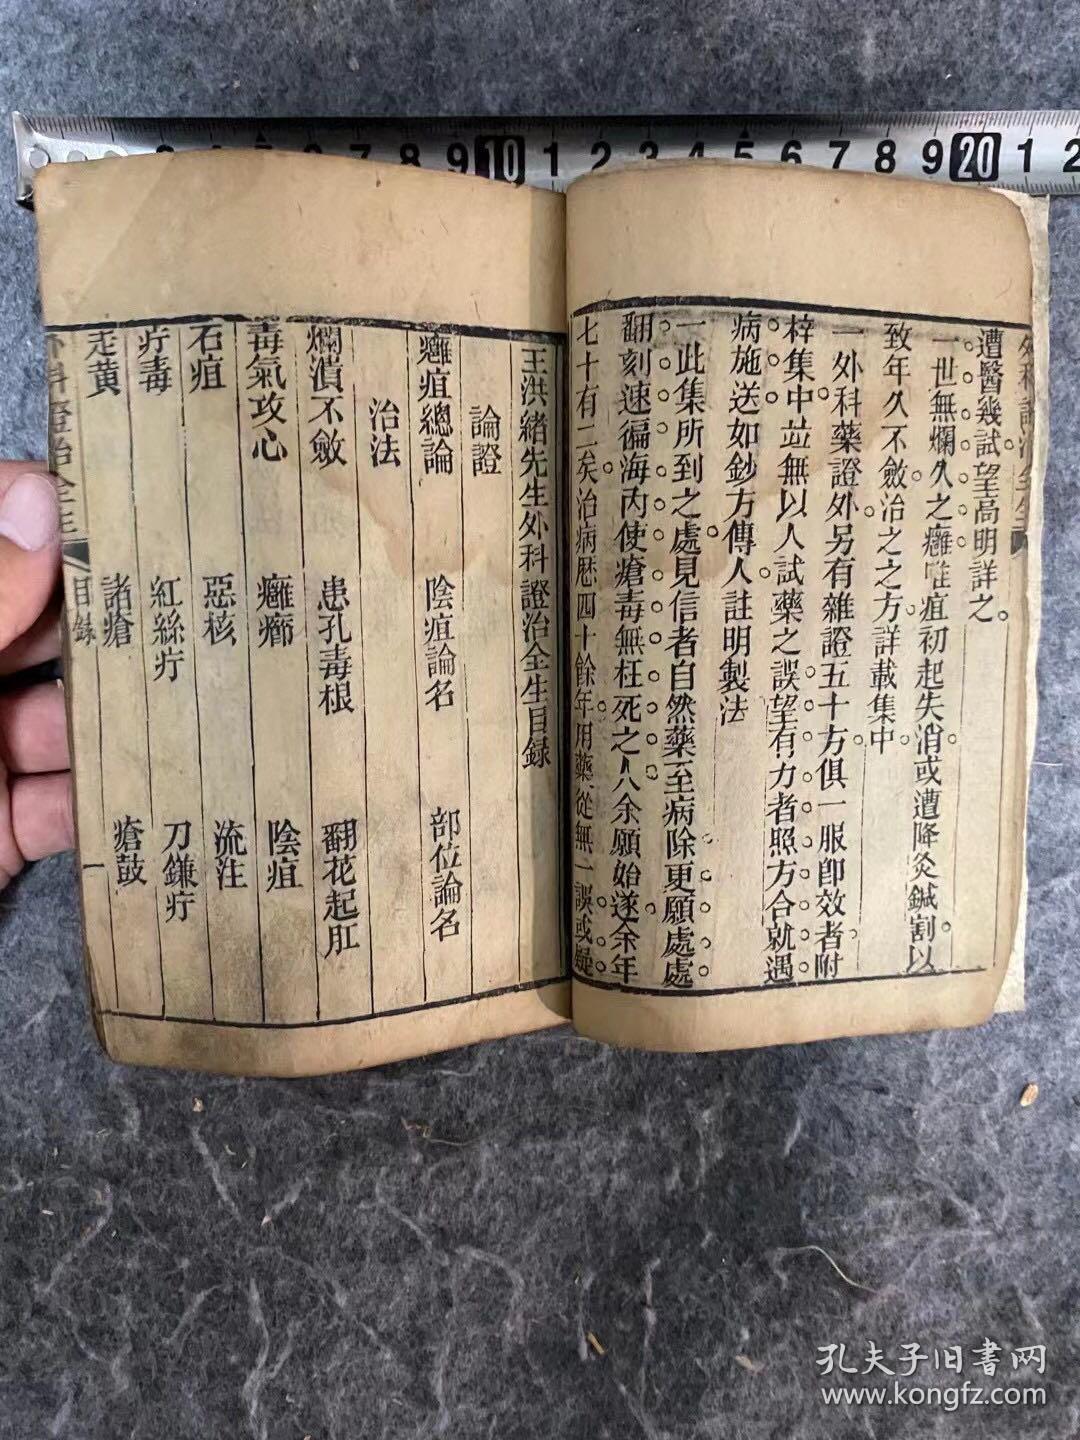 10 1 2 3 4 5 6 7 8 9 20 1 2
8 9
遭醫幾試望高明詳之
一世無爛久之癰唯疽初起失消或遭降灸鍼割以
致年久不斂治之之方詳載集中
一外科藥證外另有雜證五十方俱一服卽效者附
梓集中並無以人試藥之誤望有力者照方合就遇
病施送如鈔方傳人註明製法
一此集所到之處見信者自然藥至病除更願處處
翻刻速徧海內使瘡毒無枉死之人余願始遂余年
七十有二矣治病歷四十餘年用藥從無一誤或疑
王洪緒先生外科證治全生目録
論證
癰疽總論 陰疽論名 部位論名
治法
爛潰不斂 患孔毒根 翻花起肛
毒氣攻心 癰癤 陰疽
石疽 惡核 流注
疔毒 紅絲疔 刀鎌疔
走黄 諸瘡 瘡鼓
外科證治全生 目録 一
孔夫子旧書网
www.kongfz.com